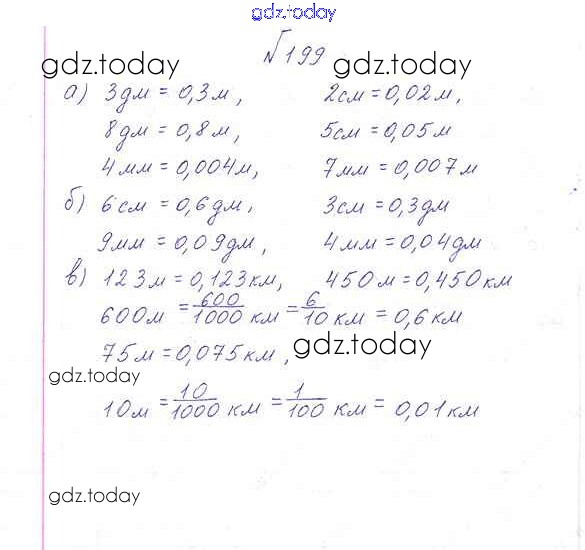 gdz.today
№199
gdz.today gdz.today
а) 3дм = 0,3м, 2см = 0,02м,
8дм = 0,8м, 5см = 0,05м
4мм = 0,004м, 7мм = 0,007м
б) 6см = 0,6дм, 3см = 0,3дм
9мм = 0,09дм, 4мм = 0,04дм
в) 123м = 0,123км, 450м = 0,450км
600м = 600/1000 км = 6/10 км = 0,6км
75м = 0,075км,
gdz.today
gdz.today
10м = 10/1000 км = 1/100 км = 0,01км
gdz.today